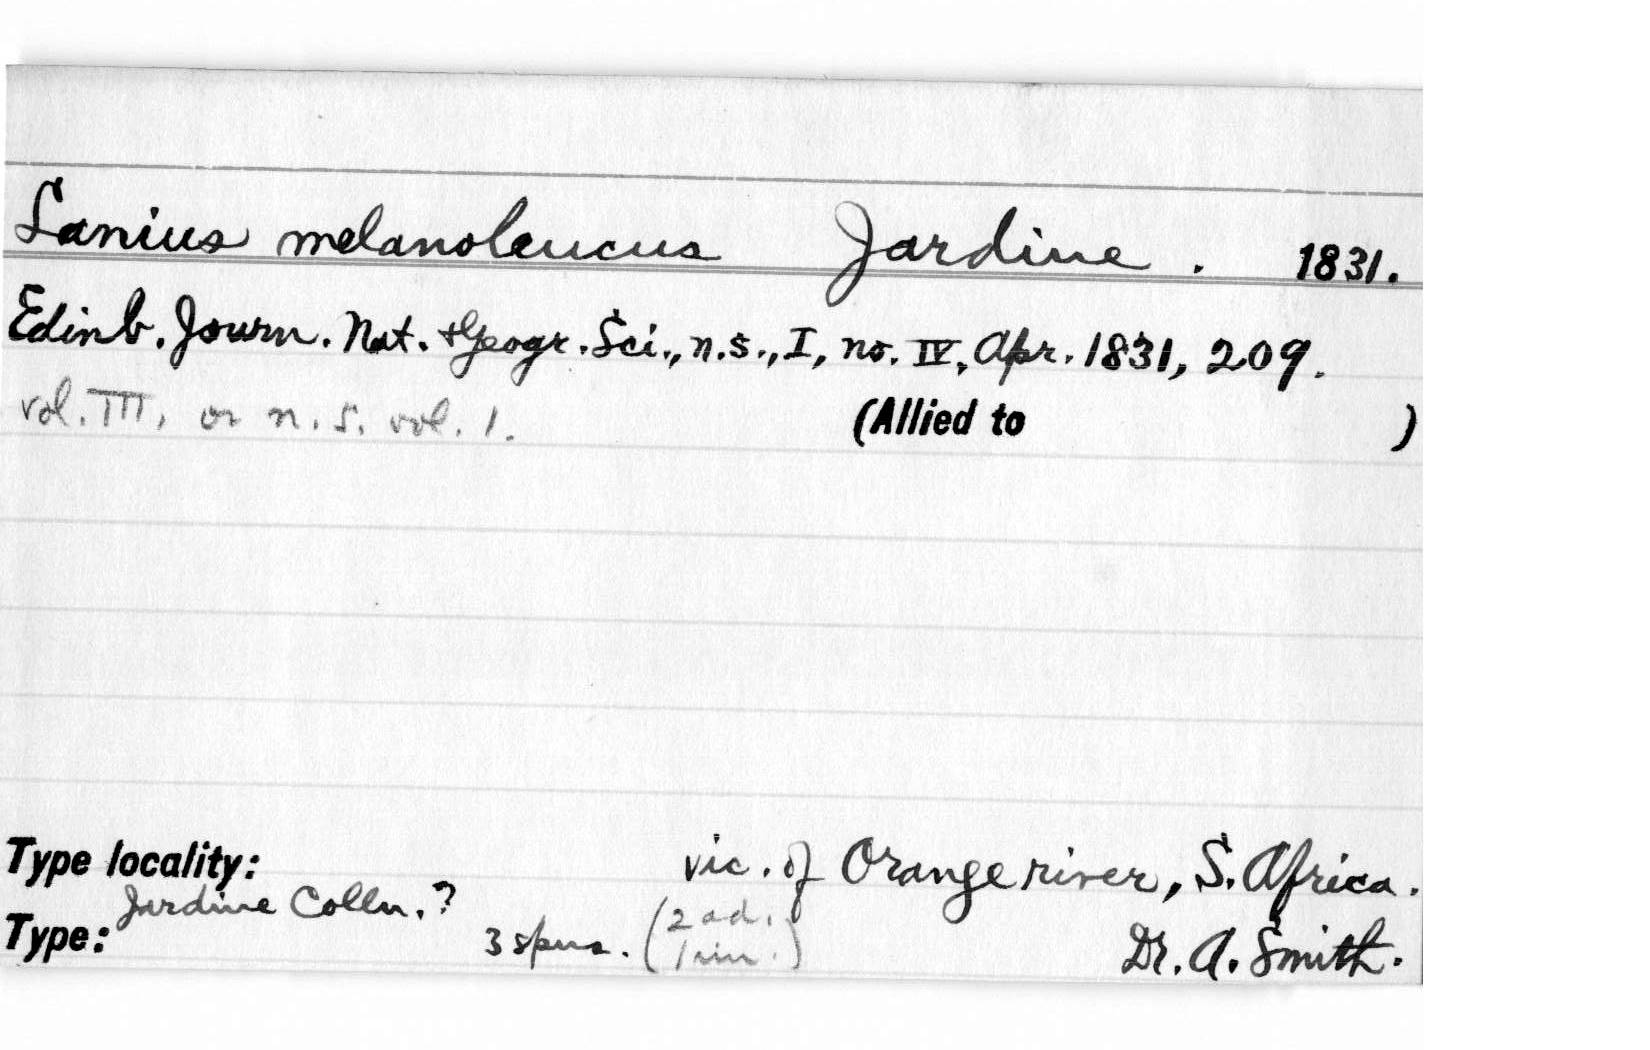 Lanius melanoleucus Jardine. 1831.
Edinb. Journ. Nat. & Geogr. Sci., n.s., I, no. IV, Apr. 1831, 209.
vol. III, or n.s. vol. 1.
(Allied to )
Type locality: vic. of Orange river, S. Africa.
Jardine Colln.?
Type: 3 spms. (2 ad. 1 im.) Dr. A. Smith.